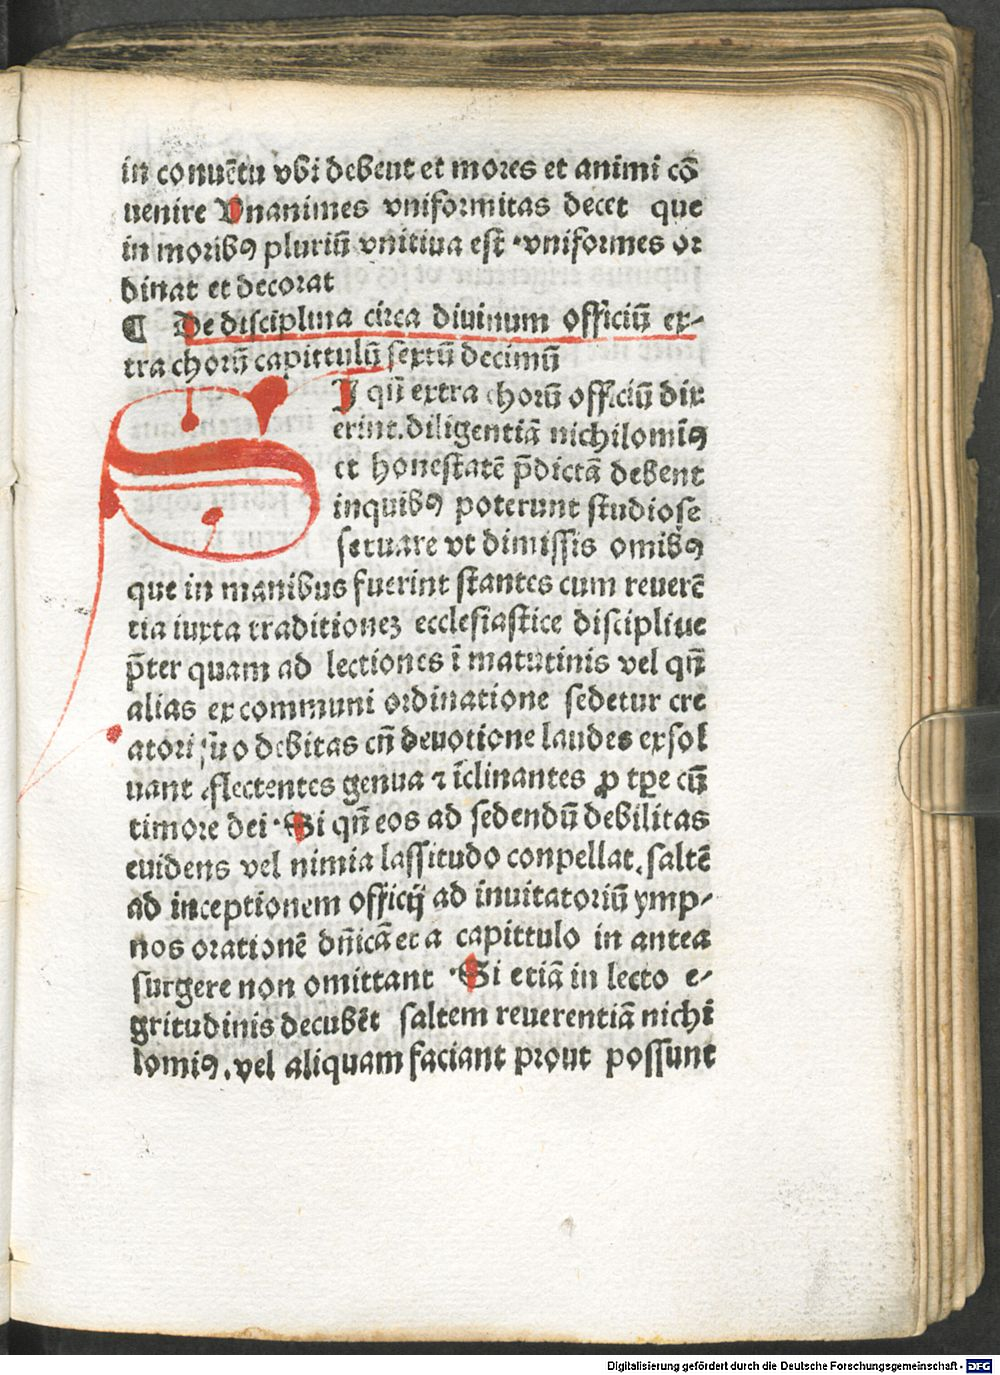 in conuētu vbi debent et mores et animi cō
uenire Vnanimes vniformitas decet que
in moribꝰ pluriū vnitiua est ·vniformes or
dinat et decorat
¶ De disciplina circa diuinum officiū ex-
tra chorū capittulū sextū decimū
SI qn̄ extra chorū officiū dix
erint.diligentiā nichilominꝰ
et honestatē p̄dictā debent
inquibꝰ poterunt studiose
seruare vt dimissis omibꝰ
que in manibus fuerint stantes cum reuerē
tia iuxta traditionez ecclesiastice discipline
p̄ter quam ad lectiones ī matutinis vel qn̄
alias ex communi ordinatione sedetur cre
atori suo debitas cū deuotione laudes exsol
uant .flectentes genua ⁊ īclinantes ꝓ tꝑe cū
timore dei · Si qn̄ eos ad sedendū debilitas
euidens vel nimia lassitudo conpellat. saltē
ad inceptionem officij ad inuitatoriū ymp-
nos orationē dn̄icā et a capittulo in antea
surgere non omittant · Si etiā in lecto e-
gritudinis decubēt saltem reuerentiā nichi
lomiꝰ.vel aliquam faciant prout possunt
Digitalisierung gefördert durch die Deutsche Forschungsgemeinschaft - DFG